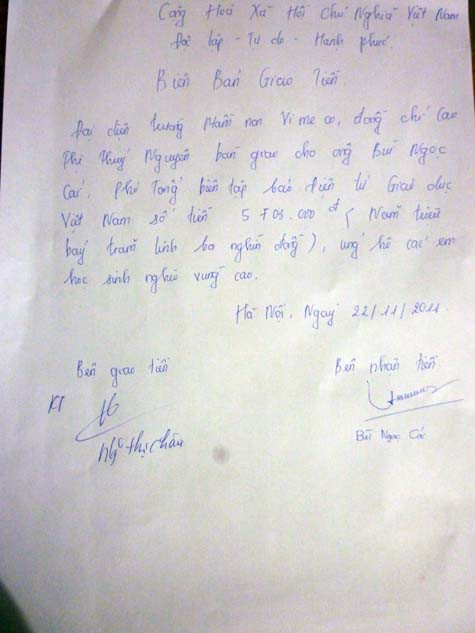 Cộng Hoà Xã Hội Chủ Nghĩa Việt Nam
Độc lập - Tự do - Hạnh phúc.
Biên Bản Giao Tiền.
Đại diện trường Mầm non Vimeco, đồng chí Cao
Thị Thuý Nguyên bàn giao cho ông Bùi Ngọc
Cải. Phó Tổng biên tập báo điện tử Giáo dục
Việt Nam số tiền 5703.000 đ ( Năm triệu
bảy trăm linh ba nghìn đồng ), ủng hộ các em
học sinh nghèo vùng cao.
Hà Nội, Ngày 22/11/2011
Bên giao tiền
Bên nhận tiền
KT
Ngô Thị Châu
Bùi Ngọc Cải